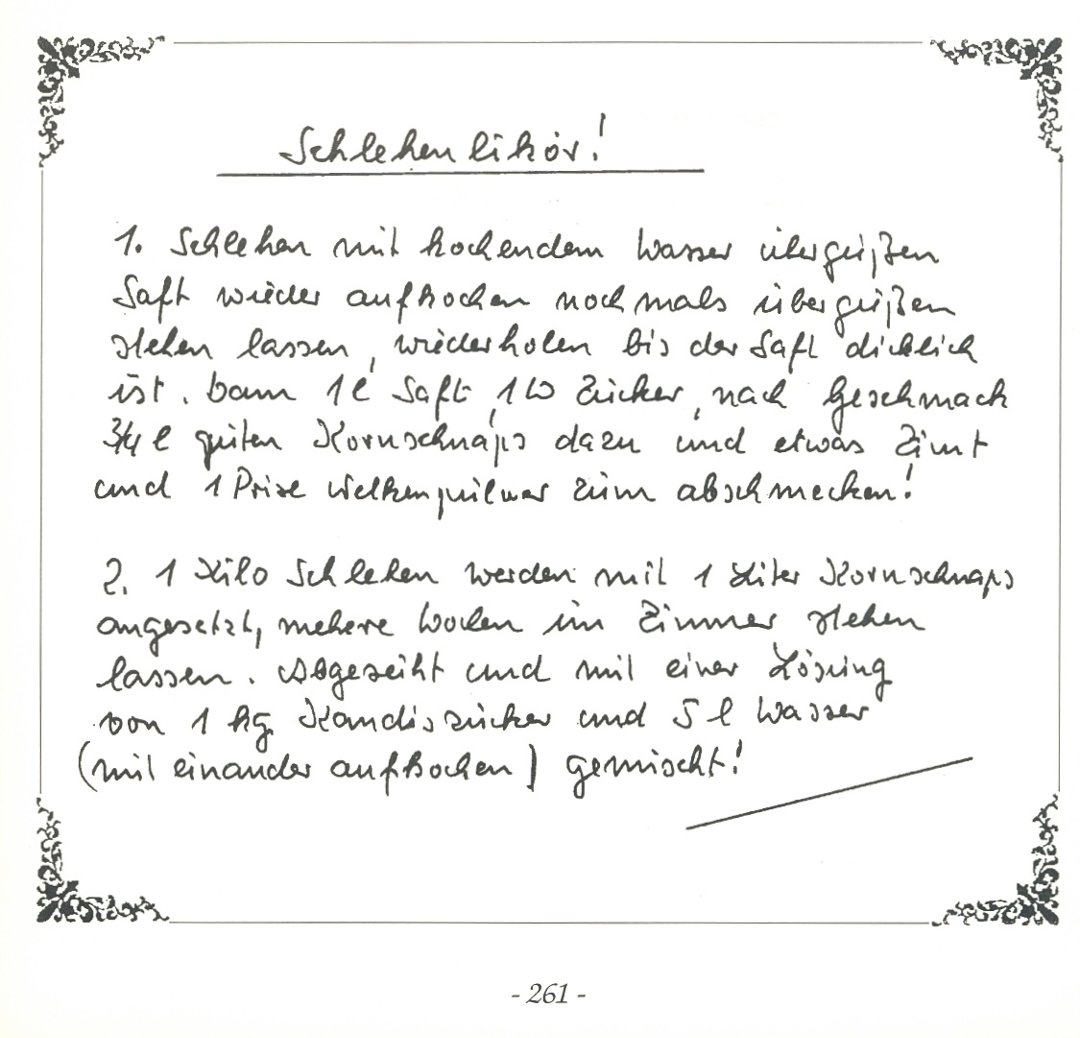 Schlehenlikör!
1. Schlehen mit kochendem Wasser übergießen
Saft wieder aufkochen nochmals übergießen
stehen lassen, wiederholen bis der Saft dicklich
ist. Dann 1 l Saft, 1 Zucker, nach Geschmack
3/4 l guten Kornschnaps dazu und etwas Zimt
und 1 Prise zum abschmecken!
2. 1 Kilo Schlehen werden mit 1 Liter Kornschnaps
angesetzt, mehere Wochen im Zimmer stehen
lassen. Abgeseiht und mit einer Lösung
von 1 kg Kandiszucker und 5 l Wasser
(mit einander aufkochen) gemischt!
- 261 -